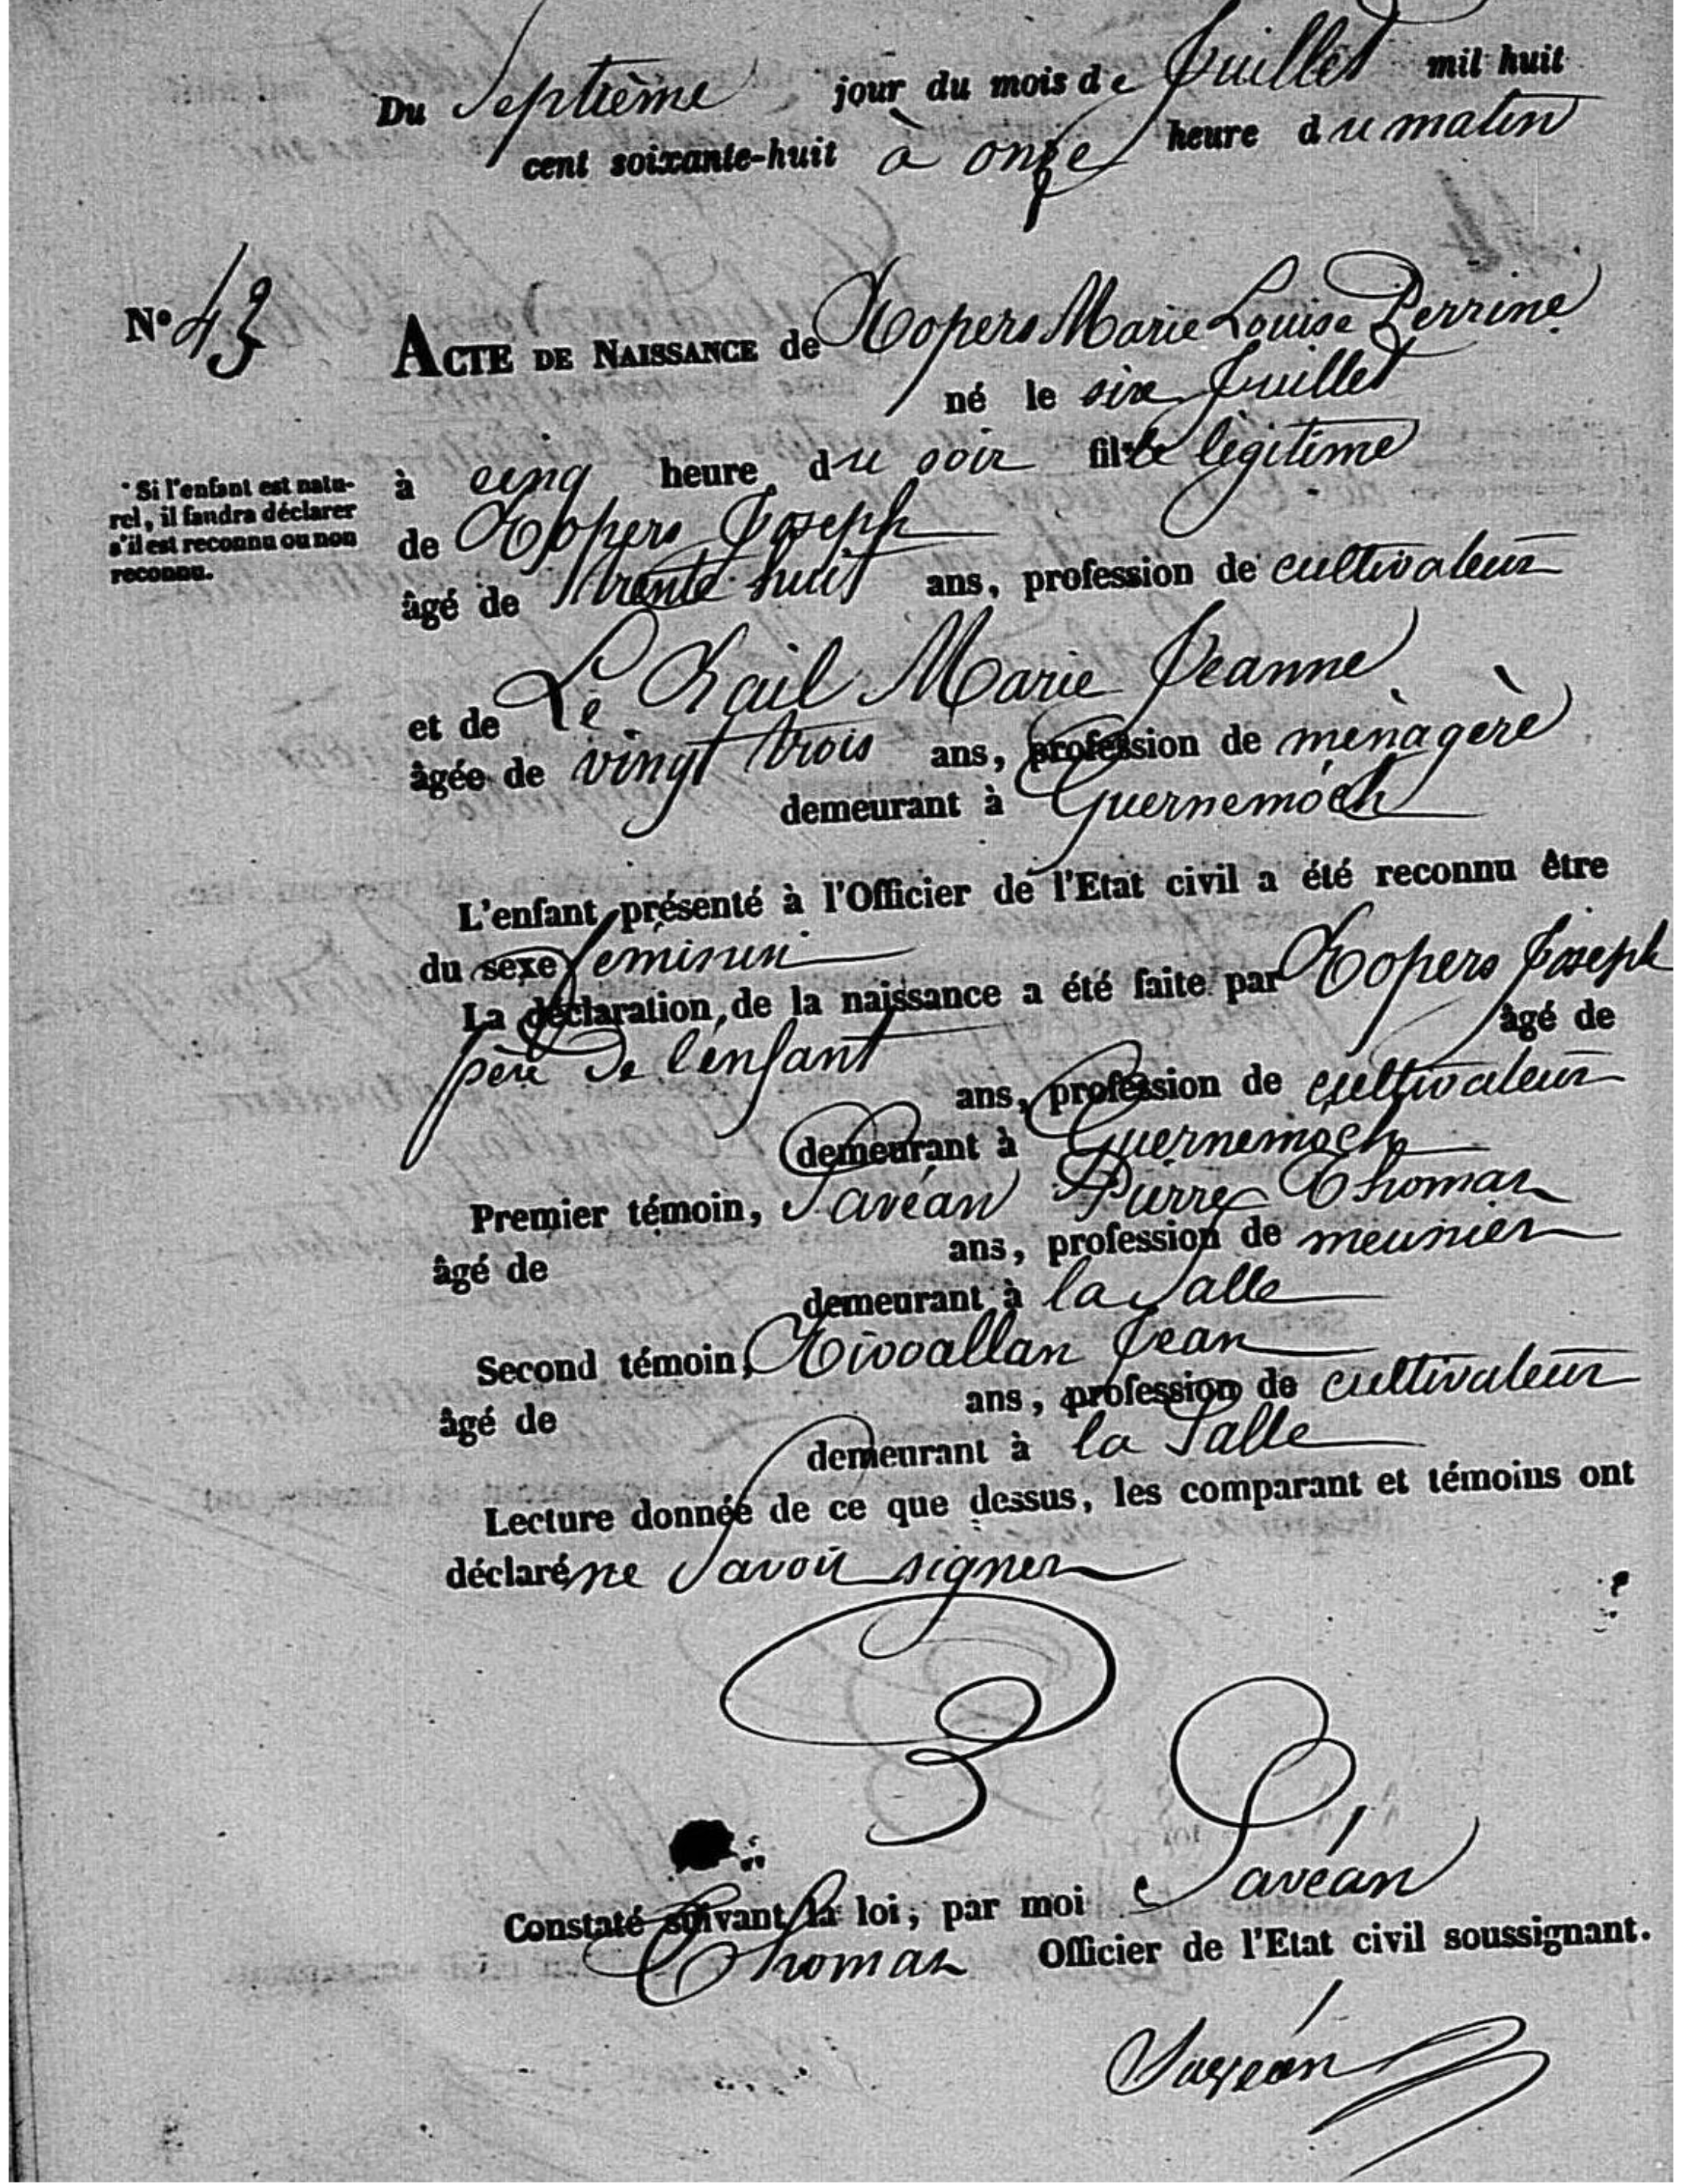 Du Septième jour du mois de Juillet mil huit
cent soixante-huit à onze heure du matin
N° 43
ACTE DE NAISSANCE de Ropers Marie Louise Perrine
né le six Juillet
à cinq heure du soir fille légitime
* Si l'enfant est natu-
rel, il faudra déclarer
s'il est reconnu ou non
reconnu.
de Ropers Joseph
âgé de trente huit ans, profession de cultivateur
et de Le Marie Jeanne
âgée de vingt trois ans, profession de ménagère
demeurant à Guernemoch
L'enfant présenté à l'Officier de l'Etat civil a été reconnu être
du sexe féminin
La déclaration de la naissance a été faite par Ropers Joseph
père de l'enfant âgé de
ans, profession de cultivateur
demeurant à Guernemoch
Premier témoin, Savéan Pierre Thomas
âgé de ans, profession de meunier
demeurant à la Salle
Second témoin, Rivoallan Jean
âgé de ans, profession de cultivateur
demeurant à la Salle
Lecture donnée de ce que dessus, les comparant et témoins ont
déclaré ne Savoir signer
Constaté suivant la loi, par moi Savéan
Thomas Officier de l'Etat civil soussignant.
Savéan